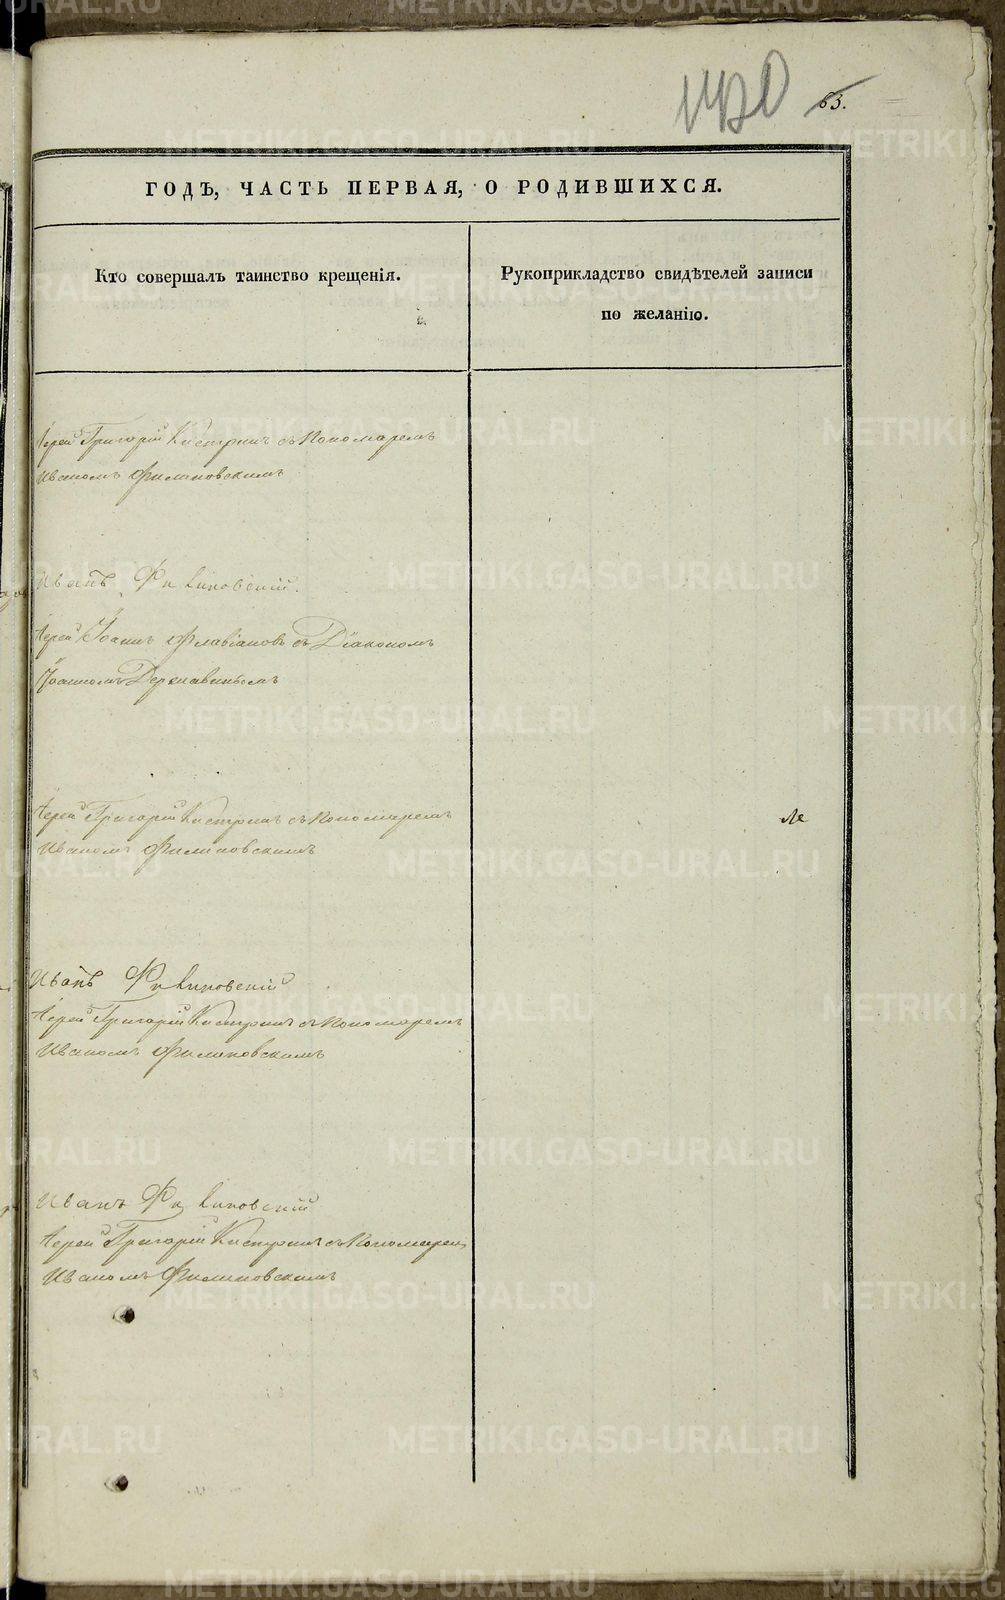 63.
ГОДЪ, ЧАСТЬ ПЕРВАЯ, О РОДИВШИХСЯ.
Кто совершалъ таинство крещенія.
Рукоприкладство свидѣтелей записи
по желанію.
Іерей Григорій съ Пономаремъ
Иваномъ Филиновскимъ
Иванъ Филиновскій.
Іерей Іоаннъ Флавіановъ съ Діакономъ
Іоанномъ Державинымъ
Іерей Григорій съ Пономаремъ
Иваномъ Филиновскимъ
Иванъ Филиновскій
Іерей Григорій съ Пономаремъ
Иваномъ Филиновскимъ
Иванъ Филиновскій
Іерей Григорій съ Пономаремъ
Иваномъ Филиновскимъ
METRIKI.GASO-URAL.RU